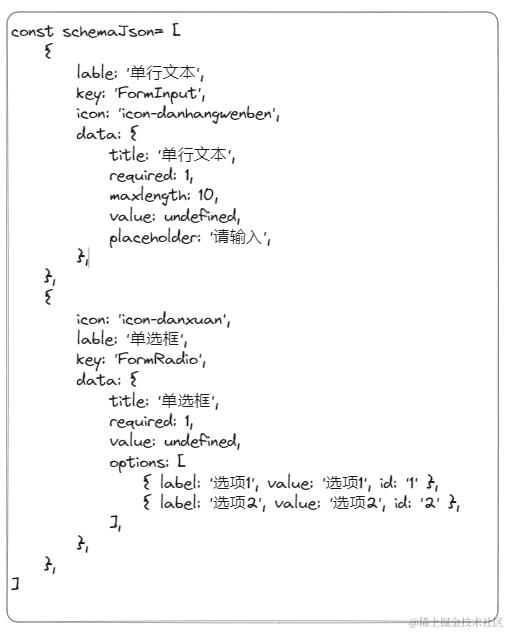 const schemaJson= [
{
lable: '单行文本',
key: 'FormInput',
icon: 'icon-danhangwenben',
data: {
title: '单行文本',
required: 1,
maxlength: 10,
value: undefined,
placeholder: '请输入',
},
},
{
icon: 'icon-danxuan',
lable: '单选框',
key: 'FormRadio',
data: {
title: '单选框',
required: 1,
value: undefined,
options: [
{ label: '选项1', value: '选项1', id: '1' },
{ label: '选项2', value: '选项2', id: '2' },
],
},
},
]
@稀土掘金技术社区